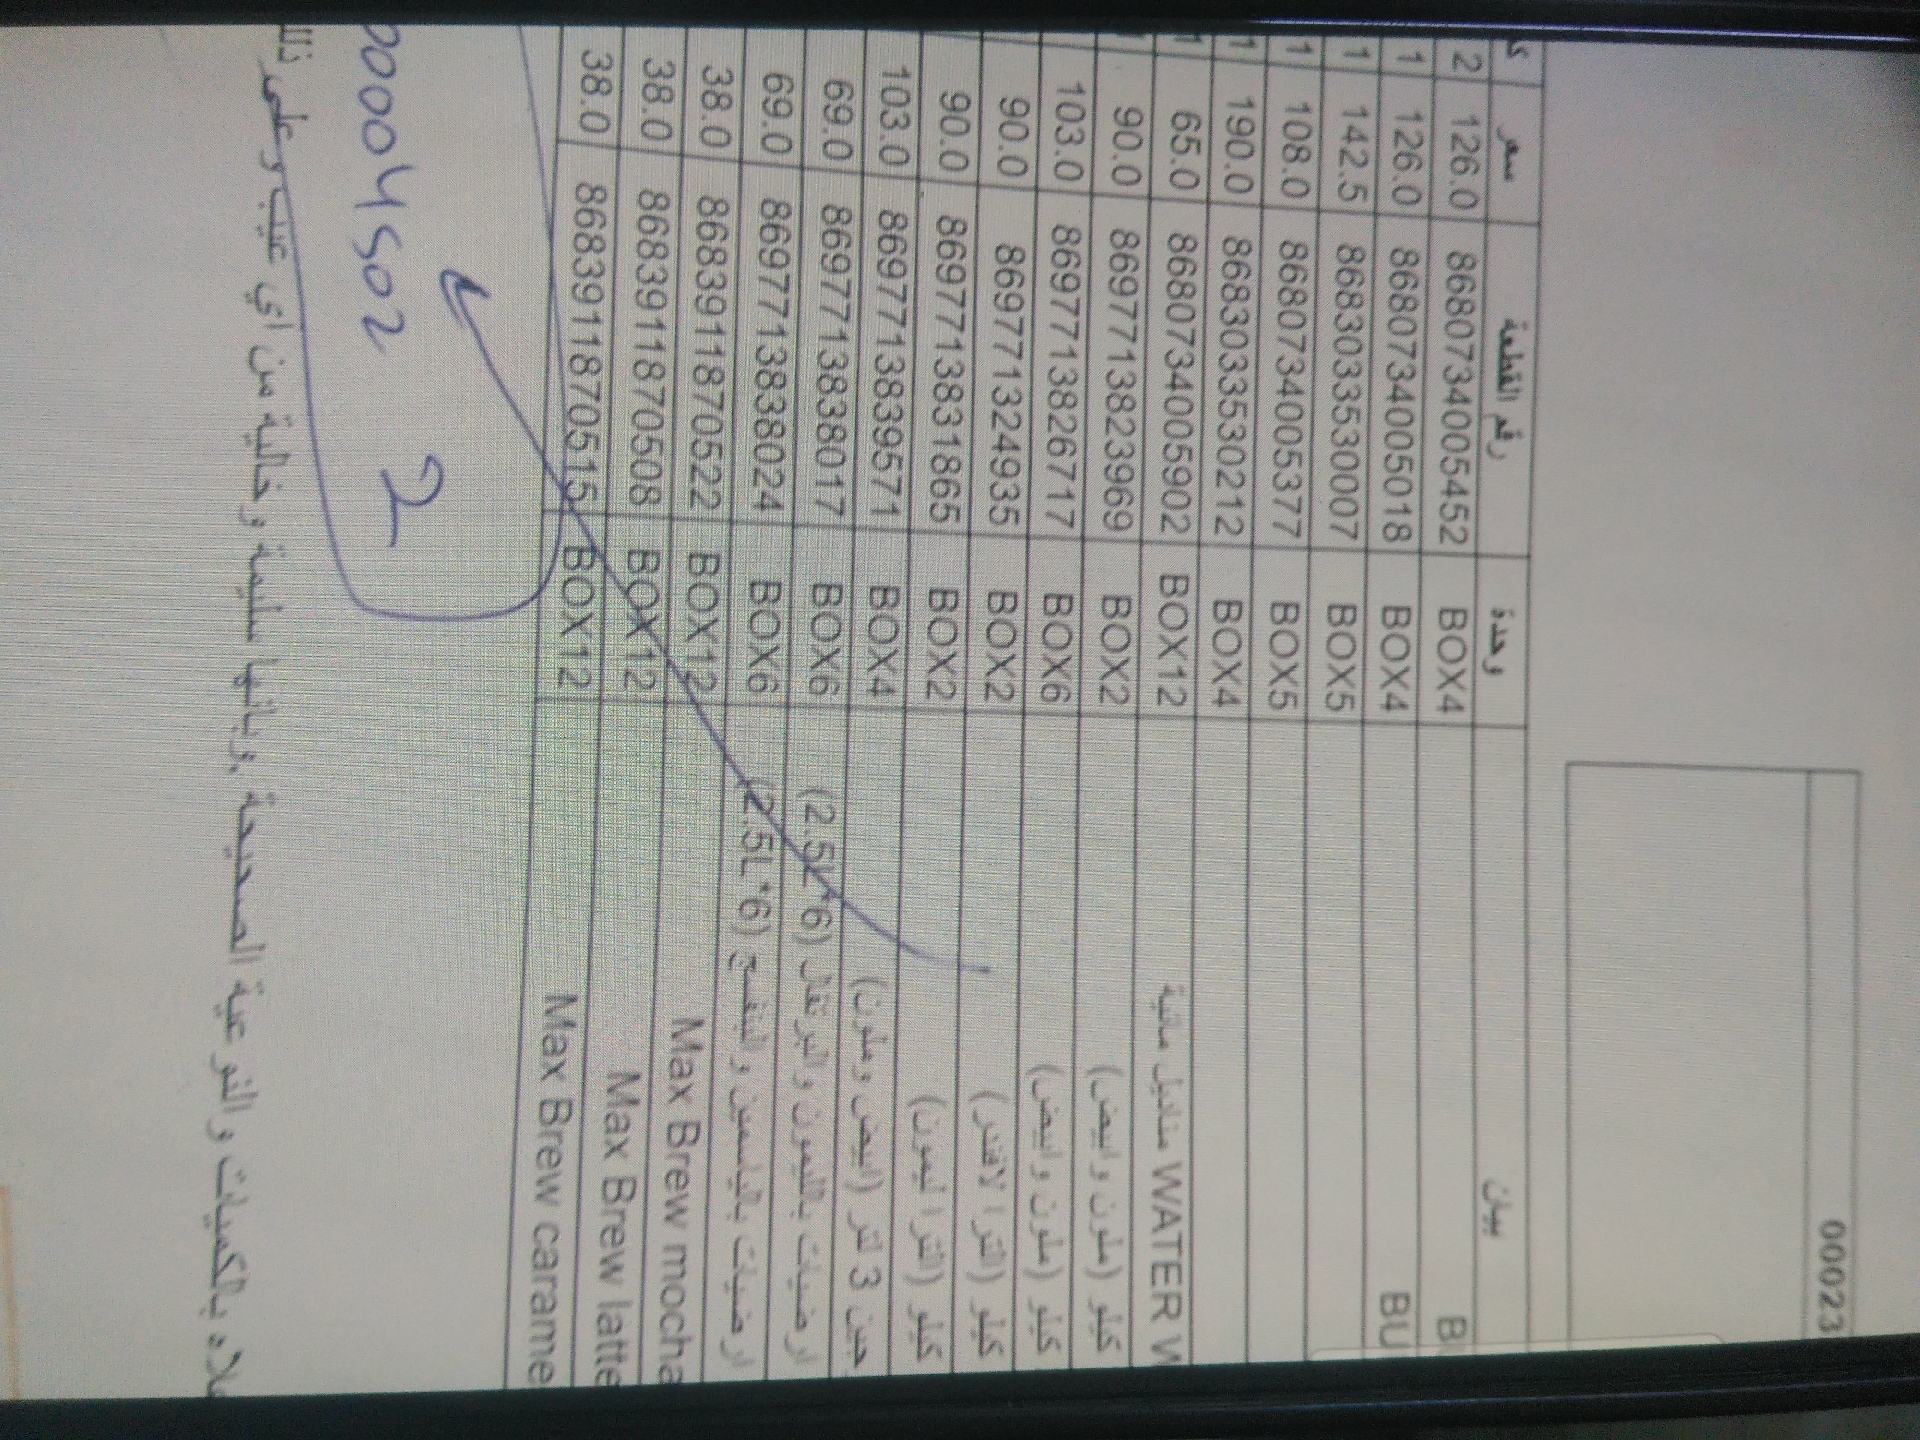 00023
سعر رقم القطعة وحدة بيان
2 126.0 8680734005452 BOX4
1 126.0 8680734005018 BOX4 BU
1 142.5 8683033530007 BOX5
1 108.0 8680734005377 BOX5
1 190.0 8683033530212 BOX4
1 65.0 8680734005902 BOX12 مناديل مائية WATER W
90.0 8697713823969 BOX2 كيلو (ملون وابيض)
103.0 8697713826717 BOX6 كيلو (ملون وابيض)
90.0 869771324935 BOX2 كيلو (الترا لافندر)
90.0 8697713831865 BOX2 كيلو (الترا ليمون)
103.0 8697713839571 BOX4 3 لتر (ابيض وملون)
69.0 8697713838017 BOX6 ارضيات بالليمون والبرتقال (2.5L*6)
69.0 8697713838024 BOX6 ارضيات بالياسمين والبنفسج (2.5L*6)
38.0 8683911870522 BOX12 Max Brew mocha
38.0 8683911870508 BOX12 Max Brew latte
38.0 8683911870515 BOX12 Max Brew carame
00004502 2
بالكميات والنوعية الصحيحة وبانها سليمة وخالية من اي عيب وعلى